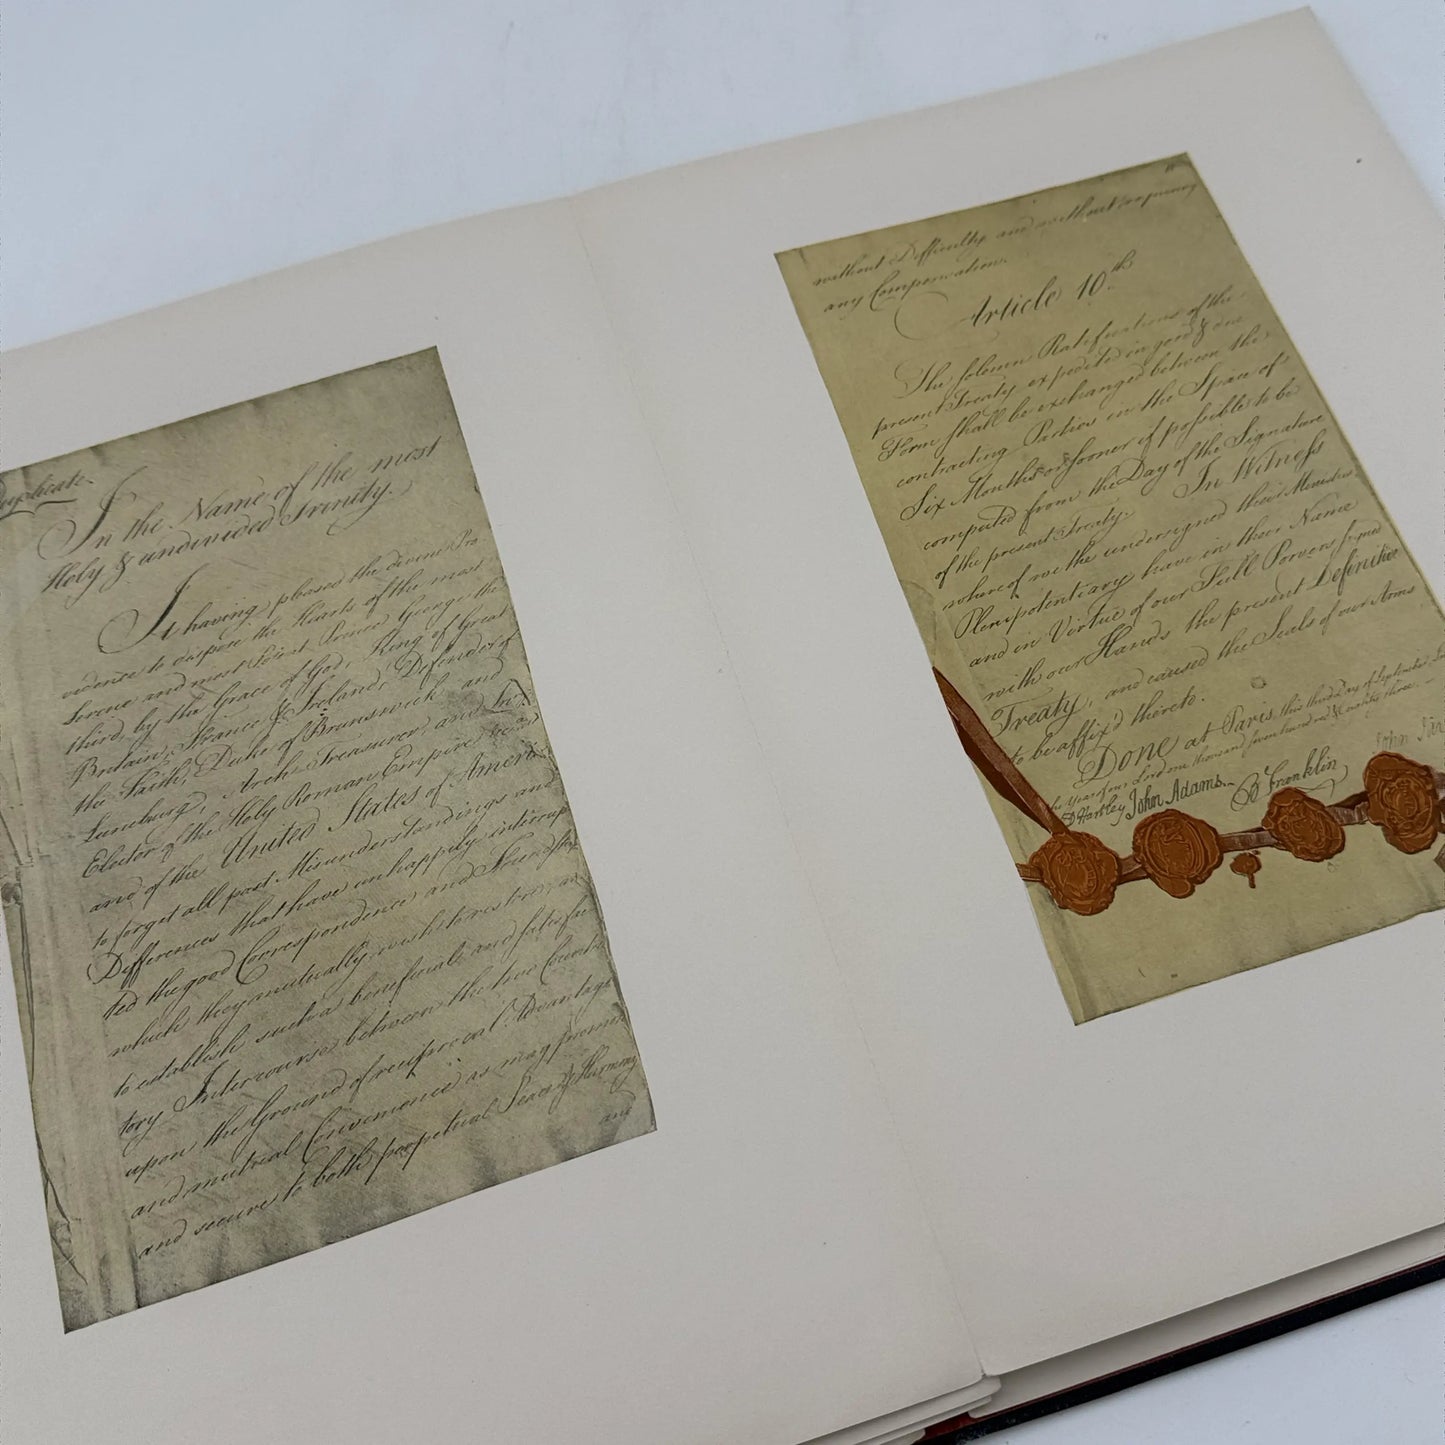 Duplicate.
In the Name of the most
Holy & undivided Trinity.
It having pleased the divine Pro
vidence to dispose the Hearts of the most
Serene and most Potent Prince George the
third, by the Grace of God, King of Great
Britain, France & Ireland, Defender of
the Faith, Duke of Brunswick and
Luneburg, Arch Treasurer, and Prince
Elector of the Holy Roman Empire &ca
and of the United States of America
to forget all past Misunderstandings and
Differences that have unhappily interrup
ted the good Correspondence and Friendship
which they mutually wish to restore; and
to establish such a beneficial and satisfac
tory Intercourse between the two Countries
upon the Ground of reciprocal Advantages
and mutual Convenience as may promote
and secure to both perpetual Peace & Harmony
and
without Difficulty and without requiring
any Compensation.
Article 10th
The solemn Ratifications of the
present Treaty expedited in good & due
Form shall be exchanged between the
contracting Parties in the Space of
Six Months or sooner if possible to be
computed from the Day of the Signature
of the present Treaty. In Witness
whereof we the undersigned their Ministers
Plenipotentiary have in their Name
and in Virtue of our Full Powers signed
with our Hands the present Definitive
Treaty, and caused the Seals of our Arms
to be affix'd thereto.
Done at Paris, this third Day of September,
the Year of our Lord one thousand seven hundred & eighty three. -
D Hartley John Adams. B Franklin John Jay